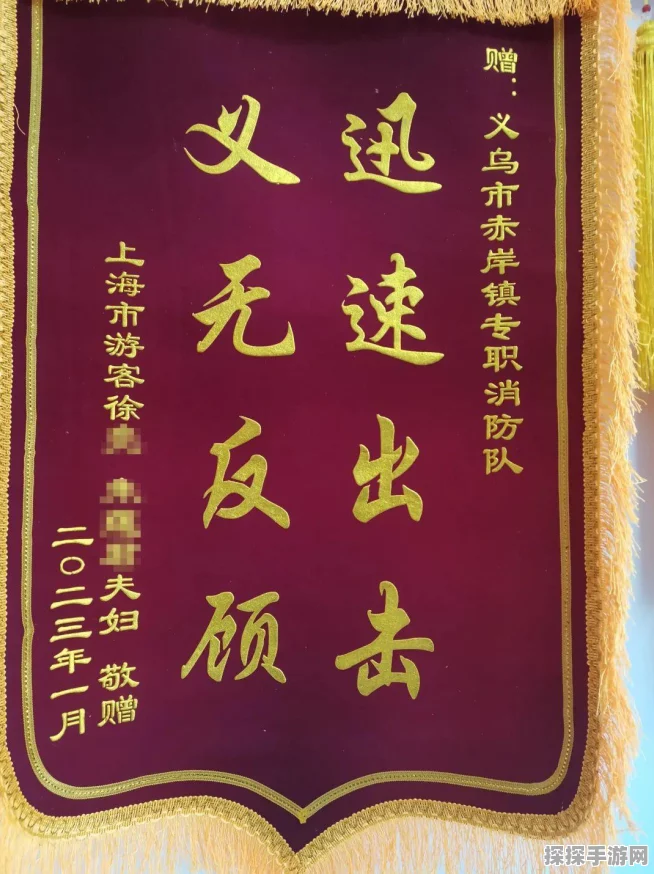 赠：义乌市赤岸镇专职消防队
迅速出击
义无反顾
上海市游客徐 夫妇 敬赠
二〇二三年一月
探探手游网